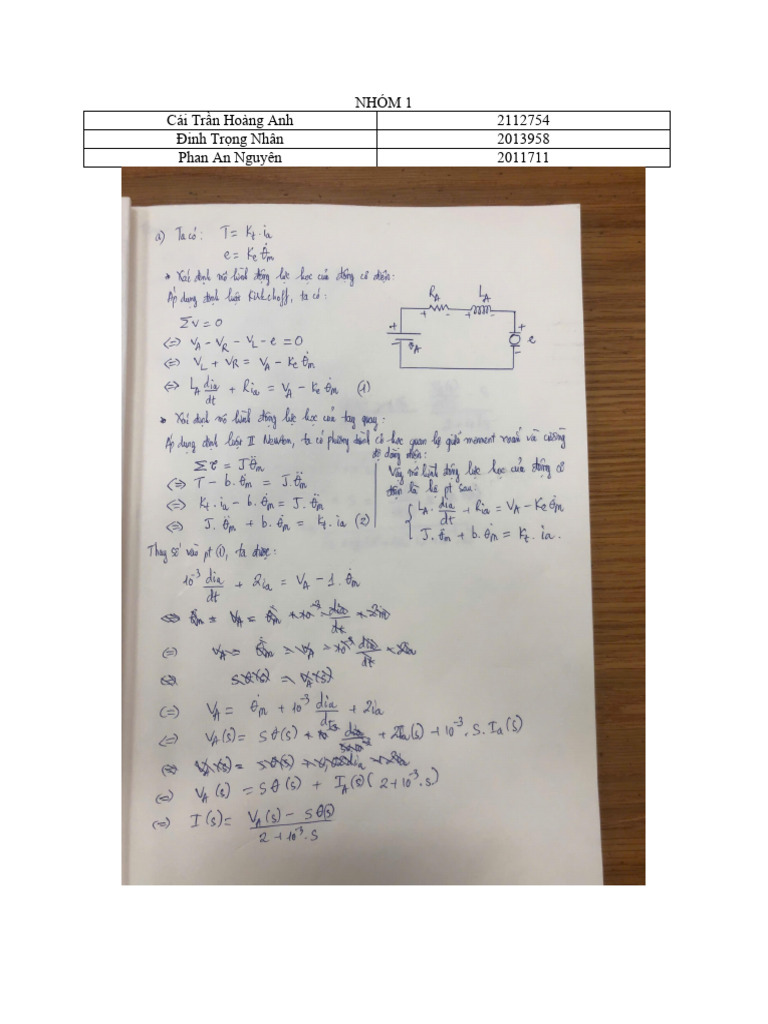 NHÓM 1
Cái Trần Hoàng Anh 2112754
Đinh Trọng Nhân 2013958
Phan An Nguyên 2011711
a) Ta có: T = Kt.ia
e = Ke θ̇m
* Xác định mô hình động lực học của động cơ điện:
Áp dụng định luật Kirkchoff, ta có:
Σv = 0
(=) VA - VR - VL - e = 0
(=) VL + VR = VA - Ke θ̇m
(=) LA dia/dt + Ria = VA - Ke θ̇m (1)
RA LA
+ - + -
+ - VA
+ - e
* Xác định mô hình động lực học của tay quay:
Áp dụng định luật II Newton, ta có phương trình cơ học quan hệ giữa moment xoắn và cường
độ dòng điện:
Στ = Jθ̈m
(=) T - b.θ̇m = J.θ̈m
(=) Kt.ia - b.θ̇m = J.θ̈m
(=) J.θ̈m + b.θ̇m = Kt.ia (2)
Vậy mô hình động lực học của động cơ
điện là hệ pt sau:
{ LA.dia/dt + Ria = VA - Ke θ̇m
J.θ̈m + b.θ̇m = Kt.ia.
Thay số vào pt (1), ta được:
10⁻³ dia/dt + 2ia = VA - 1.θ̇m
(=) VA = θ̇m + 10⁻³ dia/dt + 2ia
(=) VA(s) = Sθ(s) + 2Ia(s) + 10⁻³.S.Ia(s)
(=) VA(s) = Sθ(s) + IA(s)(2+10⁻³.s)
(=) I(s) = VA(s) - Sθ(s) / 2+10⁻³.S